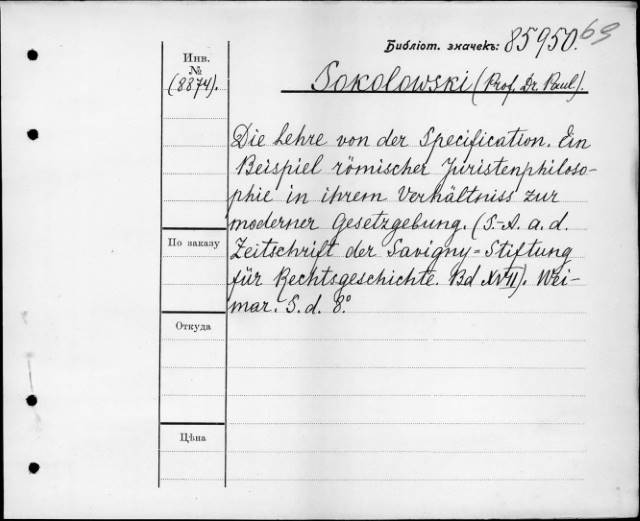 69
Библіот. значекъ: 85950.
Инв.
№
(8874).
Sokolowski (Prof. Dr. Paul).
Die Lehre von der Specification. Ein
Beispiel römischer Juristenphiloso-
phie in ihrem Verhältniss zur
moderner Gesetzgebung. (S.-A. a. d.
Zeitschrift der Savigny-Stiftung
für Rechtsgeschichte. Bd XVII). Wei-
mar. S. d. 8°
По заказу
Откуда
Цѣна